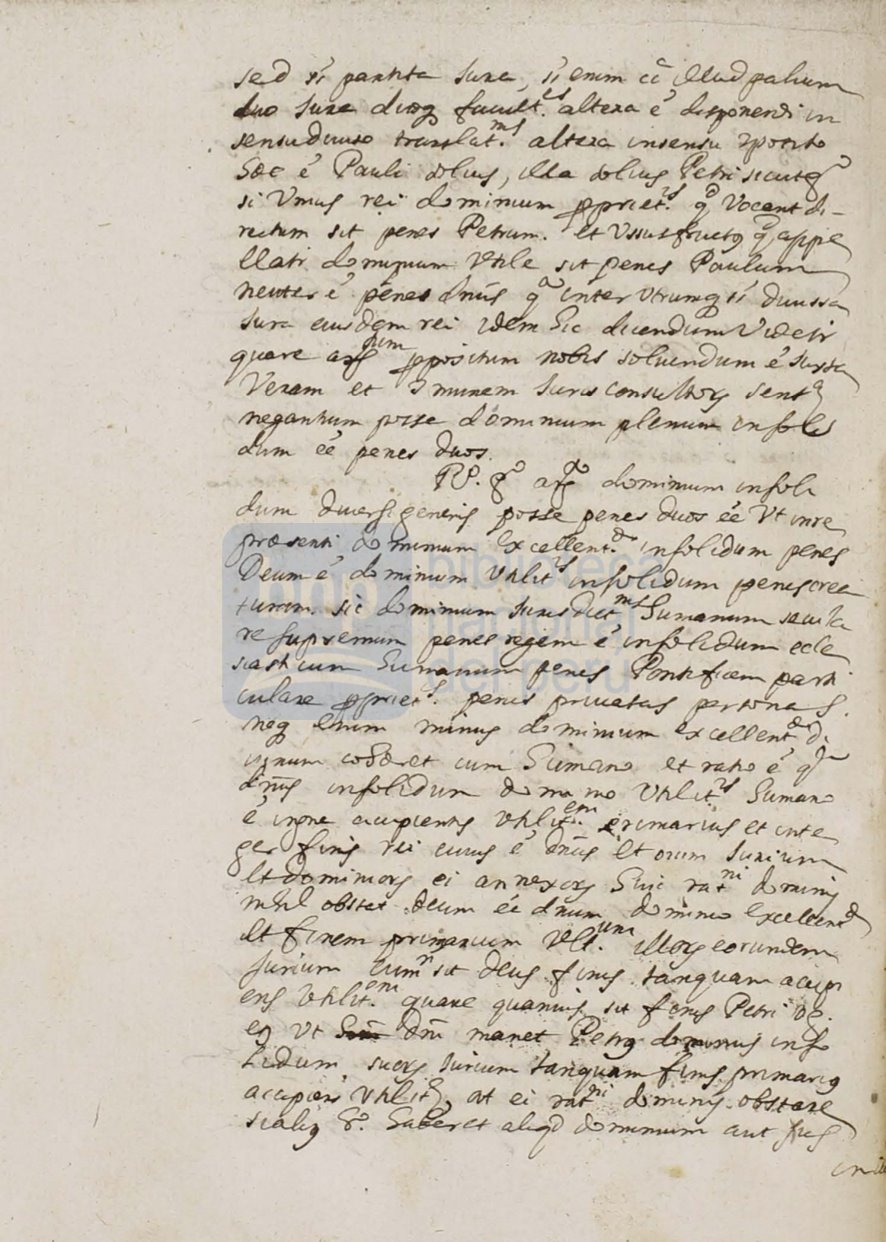 sed si partita iura, si enim cĩ illud palium
duo iura diusq facult.es altera ẽ disponendi in
sensu diuiso translat.ms altera in sensu 9posito
Hæc ẽ Pauli solius, illa solius Petri sicut
si Vnius rei dominium ppriet.is q Vocant di-
rectum sit penes Petrum. et Vsusfructq q appe
llatr dominium Vtile sit penes Paulum
neuter ẽ penes dnũs q inter Vtrumq st diuissa
iura eiusdem rei idem Sic dicendum Videtr
quare arg.tum ppositum nobis soluendum ẽ iuxta
Veram et 9munem Iuris consultorʒ sent.a
negantium posse dominium plenum in soli
dum ẽẽ penes duos.
Rs. arg.to dominium in soli
dum diuersi generis posse penes duos ẽẽ Vt in re
præsenti dominium Excellent. in solidum penes
Deum ẽ dominium Vtilit.is in solidum penes crea
turam. sic dominium iurisdict. humanum secula
re supremum penes regem ẽ in solidum eccle
siasticum humanum penes Pontificem parti
culare ppriet.s penes priuatas personas.
neq enim minus dominium excellent. di
uinum cohæret cum humano et ratio ẽ q
dnũs in solidum dominio Vtilit.is humano
ẽ in gne accipientis Vtilit.em primarius et inte
ger finis rei cuius ẽ dnũs et oium iurium
et dominiorʒ ei annexorʒ huic rat.ni dominij
nihil obstat deum ẽẽ dnum dominio excellent.
et finem primarium Vlt.um illorʒ eorundem
iurium cum sit deus finis tanquam accipi
ens Vtilit.em quare quamuis sit finis Petri
eo Vt dnĩ manet Petrq dominus in so
lidum suorʒ iurium tanquam finis primariq
accipiens Vtilit. at ei rat.ni dominij obstare
si aliq haberet aliqd dominium aut ius
in